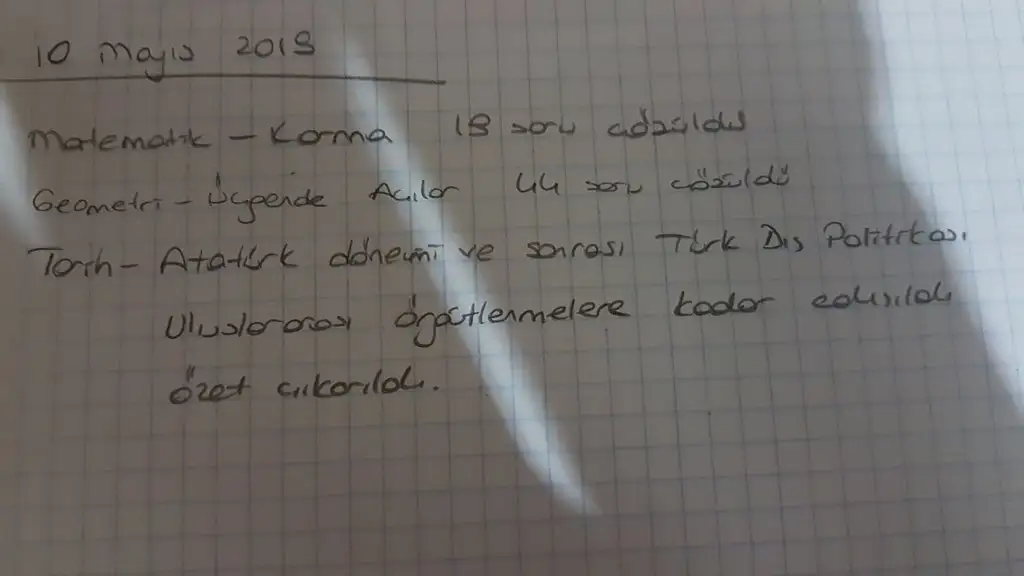 10 Mayıs 2019
Matematik - Karma 18 soru çözüldü
Geometri - Üçgende Açılar 44 soru çözüldü
Tarih - Atatürk dönemi ve sonrası Türk Dış Politikası
Uluslararası örgütlenmelere kadar çalışıldı
özet çıkarıldı.